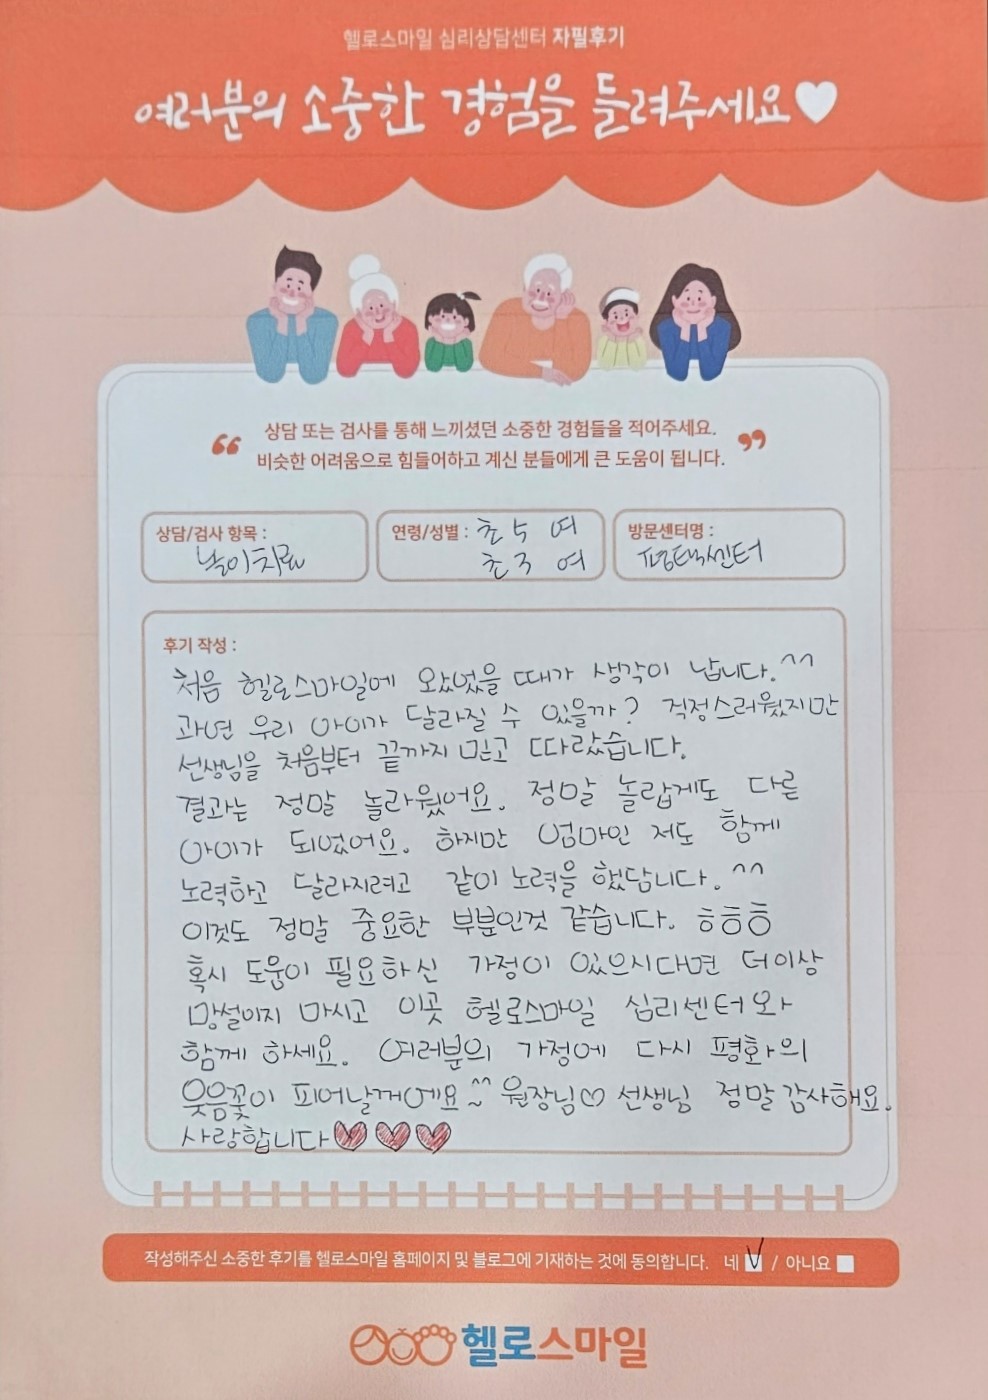 헬로스마일 심리상담센터 자필후기
여러분의 소중한 경험을 들려주세요♥
“ 상담 또는 검사를 통해 느끼셨던 소중한 경험들을 적어주세요. ”
비슷한 어려움으로 힘들어하고 계신 분들에게 큰 도움이 됩니다.
상담/검사 항목 : 놀이치료
연령/성별 : 초5 여
초3 여
방문센터명 : 평택센터
후기 작성 :
처음 헬로스마일에 왔었을 때가 생각이 납니다.^^
과연 우리 아이가 달라질 수 있을까? 걱정스러웠지만
선생님을 처음부터 끝까지 믿고 따랐습니다.
결과는 정말 놀라웠어요. 정말 놀랍게도 다른
아이가 되었어요. 하지만 엄마인 저도 함께
노력하고 달라지려고 같이 노력을 했답니다.^^
이것도 정말 중요한 부분인것 같습니다. ㅎㅎㅎ
혹시 도움이 필요하신 가정이 있으시다면 더이상
망설이지 마시고 이곳 헬로스마일 심리센터와
함께 하세요. 여러분의 가정에 다시 평화의
웃음꽃이 피어날꺼에요^^~ 원장님♡ 선생님 정말 감사해요.
사랑합니다♥♥♥
작성해주신 소중한 후기를 헬로스마일 홈페이지 및 블로그에 기재하는 것에 동의합니다. 네 ☑ / 아니요 ■
헬로스마일